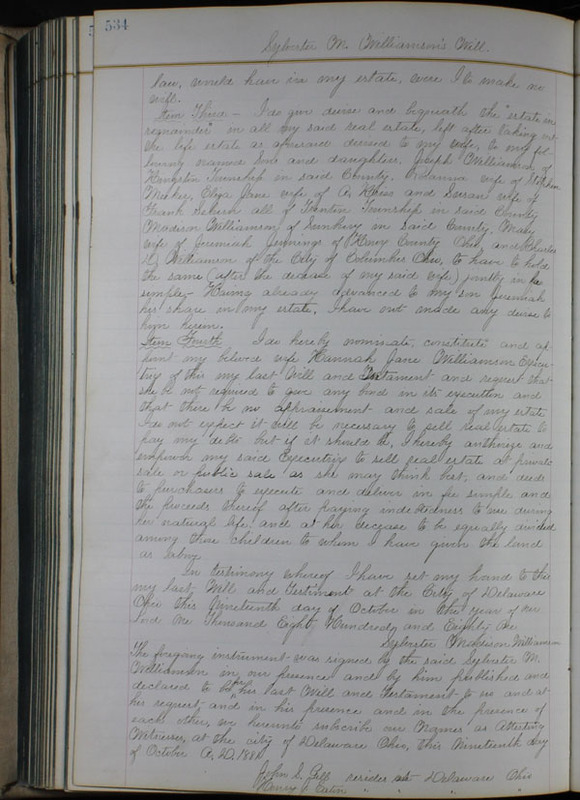 534
Sylvester M. Williamson's Will.
law, would have in my estate, were I to make no
will.
Item Third – I do give devise and bequeath the "estate in
remainder" in all my said real estate, left after taking out
the life estate as aforesaid devised to my wife, to my fol
lowing named sons and daughters, Joseph Williamson of
Kingston Township in said County, wife of Stephen
Mackey, Eliza Jane wife of A and Susan wife of
Frank all of Trenton Township in said County
Madison Williamson of Sunbury in said County, Mary
wife of Jeremiah Jennings of Henry County Ohio, and Charles
D. Williamson of the City of Columbus Ohio, to have to hold
the same (after the decease of my said wife) jointly in fee
simple – Having already advanced to my son Jeremiah
his share in my estate, I have not made any devise to
him herein.
Item Fourth I do hereby nominate, constitute and ap
point my beloved wife Hannah Jane Williamson Execu-
trix of this my last Will and Testament and request that
she be not required to give any bond in its execution and
that there be no appraisement and sale of my estate
I do not expect it will be necessary to sell real estate to
pay my debts but if it should be, I hereby authorize and
empower my said Executrix to sell real estate at private
sale or public sale as she may think best, and deeds
to purchasers to execute and deliver in fee simple and
the proceeds thereof after paying indebtedness to use during
her natural life, and at her decease to be equally divided
among those children to whom I have given the land
as above.
In testimony whereof I have set my hand to this
my last Will and Testiment at the City of Delaware
Ohio this Nineteenth day of October in the year of our
Lord One Thousand Eight Hundred and Eighty One
Sylvester Madison Williamson
The foregoing instrument was signed by the said Sylvester M.
Williamson in our presence and by him published and
declared to be his last Will and Testament to us and at
his request and in his presence and in the presence of
each other, we hereunto subscribe our Names as Attesting
Witnesses, at the city of Delaware Ohio, this Nineteenth day
of October A.D. 1881.
John S. Gill resides at Delaware Ohio
Henry J. Eaton " " "